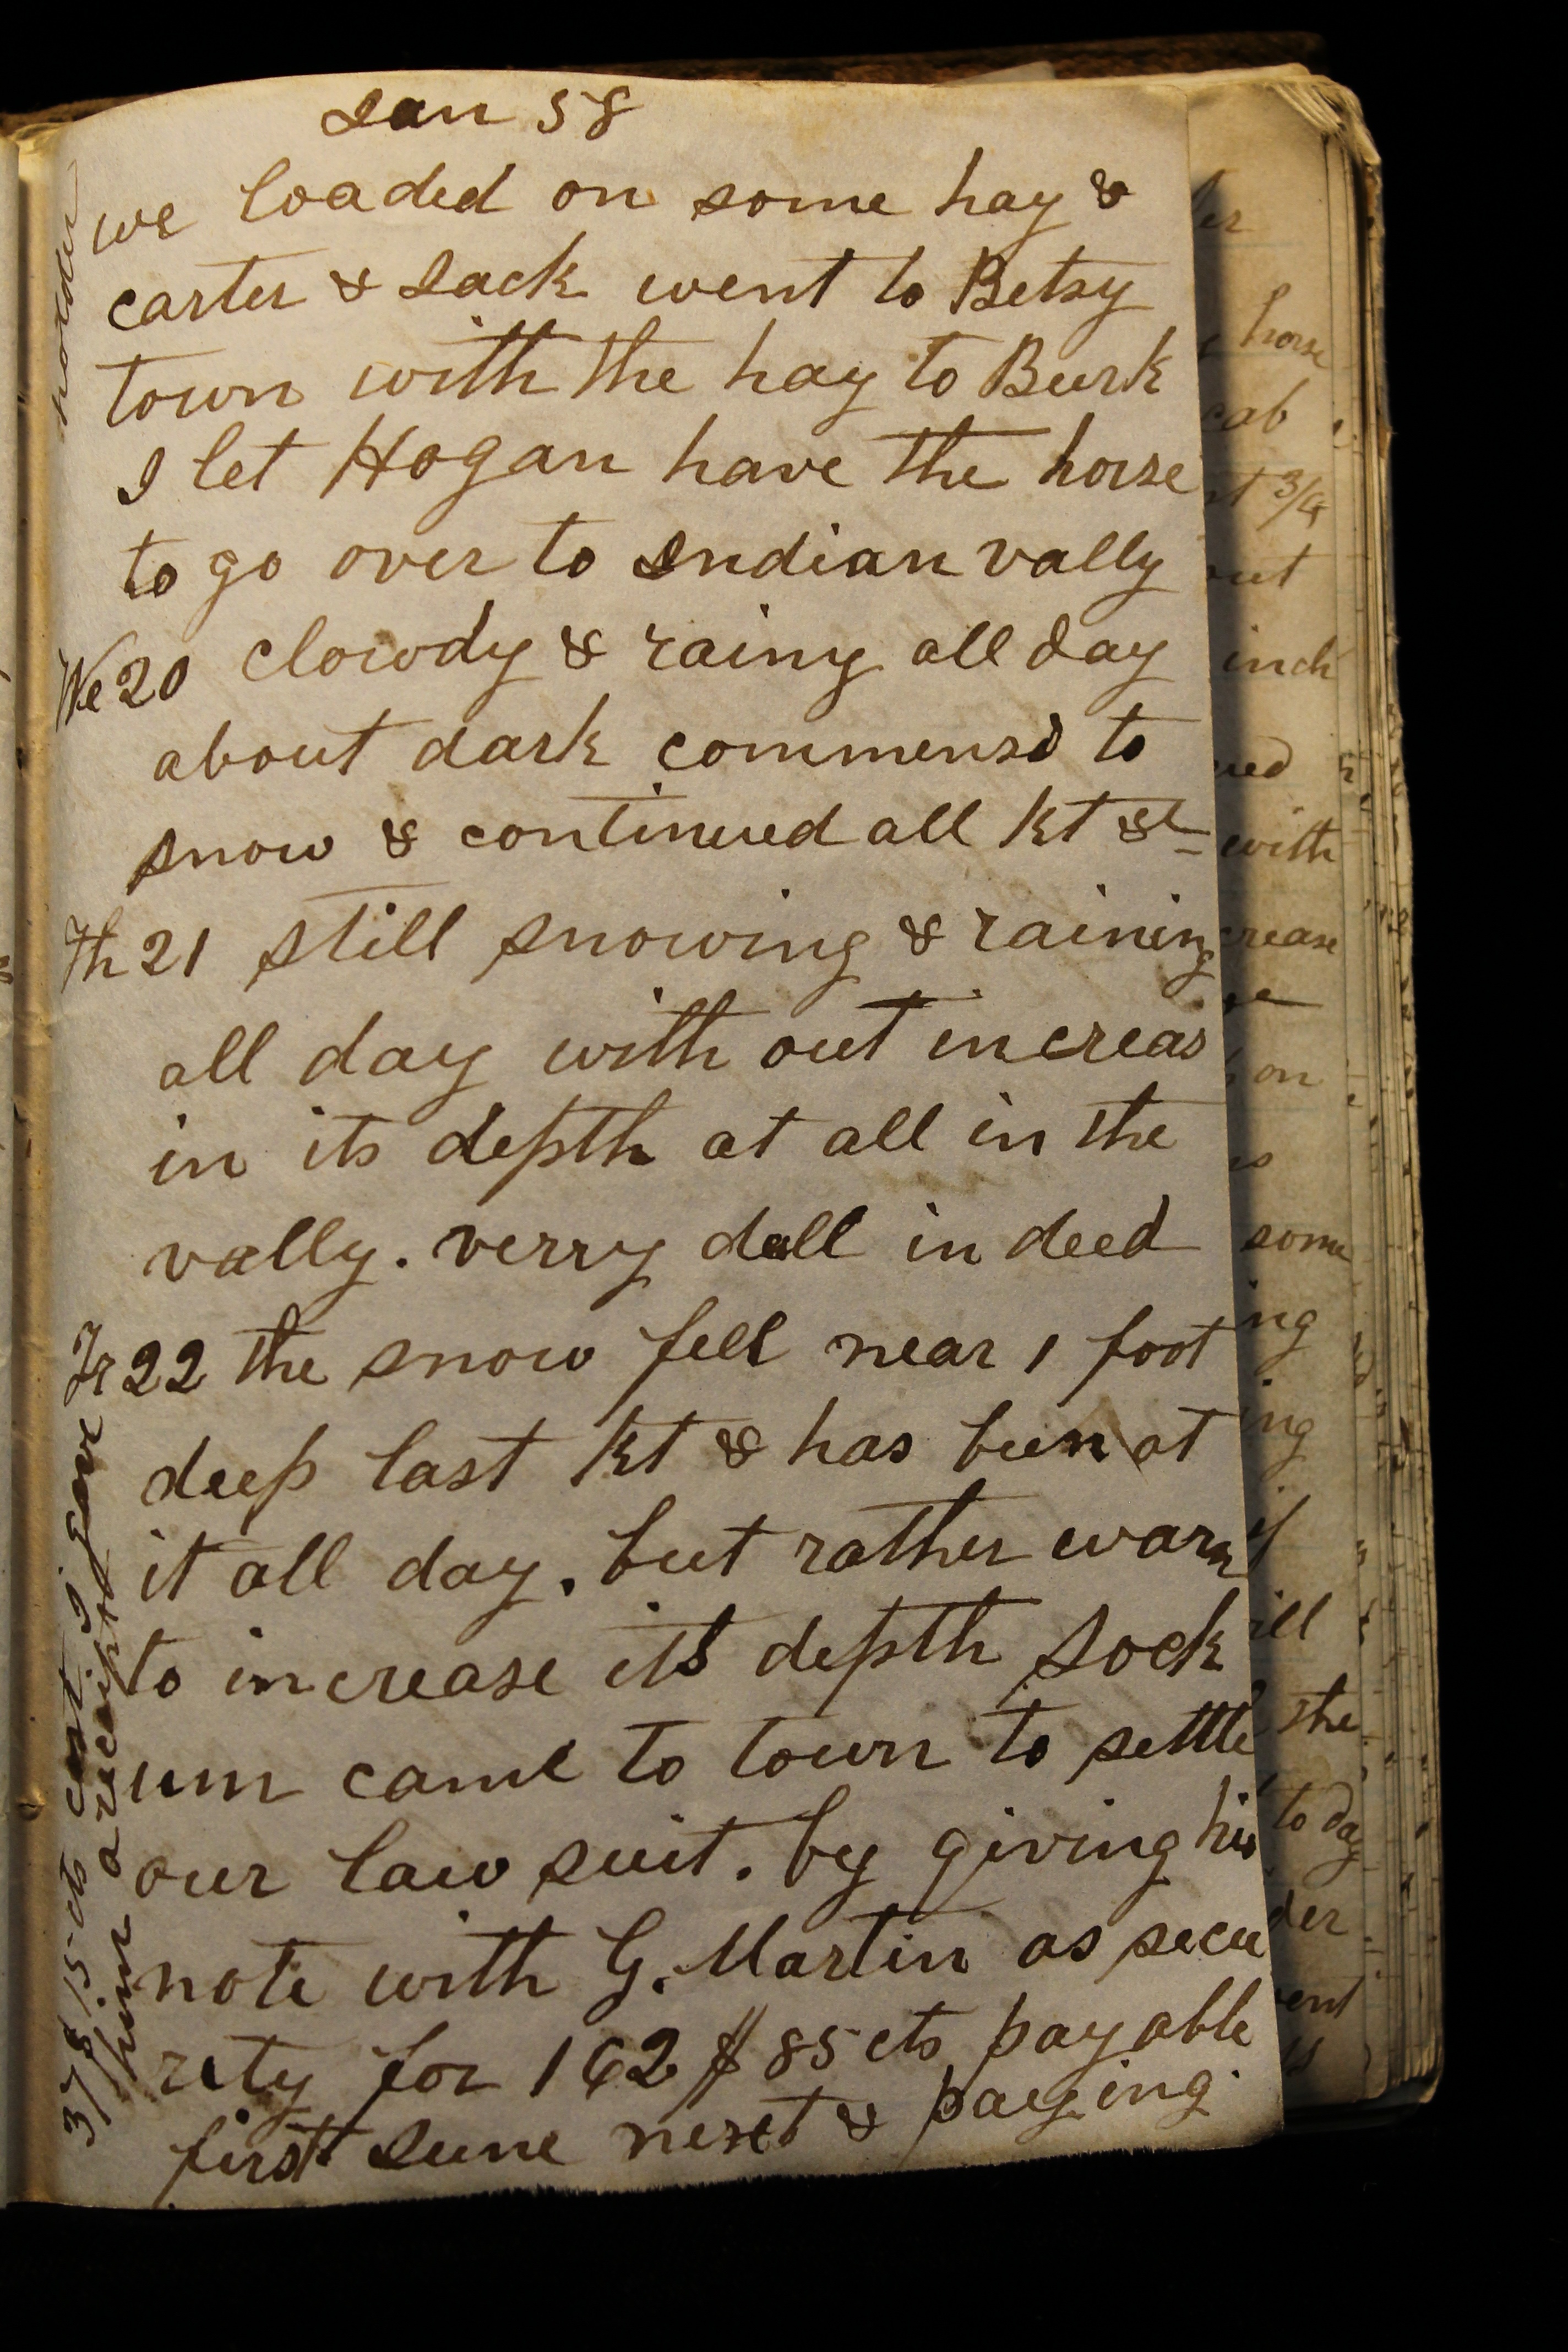 Jan 58
we loaded on some hay &
carter & Jack went to Betsy
town with the hay to Burk
I let Hogan have the horse
to go over to Indian vally
We 20 clowdy & rainy all day
about dark commensd to
snow & continued all kt &c
Th 21 still snowing & raining
all day with out increas
in its depth at all in the
vally. verry dull in deed
Fr 22 the snow fell near 1 foot
deep last kt & has been at
it all day. but rather warm
to increase its depth Sock
um came to town to settle
our law suit. by giving his
note with G. Martin as secu
rity for 162 $ 85 cts payable
first June next & paying
37 $ 15 cts cost I gave
him a receipt
horse
cab
3/4
inch
with
on
some
ing
ing
the
to day